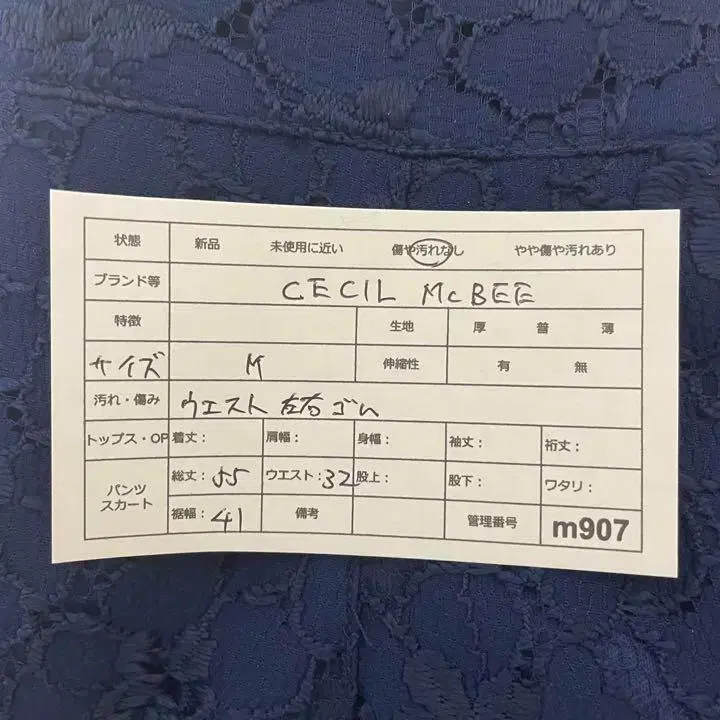 状態 新品 未使用に近い 傷や汚れなし やや傷や汚れあり
ブランド等 CECIL McBEE
特徴 生地 厚 普 薄
サイズ M 伸縮性 有 無
汚れ・傷み ウエスト 左右 ゴム
トップス・OP 着丈： 肩幅： 身幅： 袖丈： 裄丈：
パンツ 総丈：55 ウエスト：32 股上： 股下： ワタリ：
スカート 裾幅：41 備考 管理番号 m907